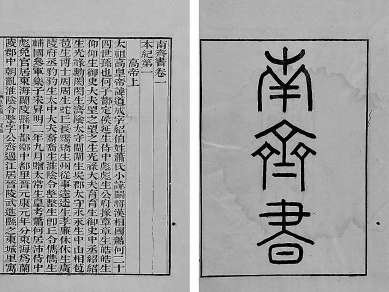 南齊書
南齊書卷一
本紀第一
高帝上
太祖高皇帝諱道成字紹伯姓蕭氏小諱鬭將漢相國蕭何二十
四世孫也何子酇定侯延生侍中彪彪生公府掾章章生皓皓生
仰仰生御史大夫望之望之生光祿大夫育育生御史中丞紹紹
生光祿勳閎閎生濟陰太守闡闡生吳郡太守永永生中山相苞
苞生博士周周生蛇丘長矯矯生州從事逵逵生孝廉休休生廣
陵府丞豹豹生太中大夫裔裔生淮陰令整整生即丘令儁儁生
輔國參軍樂子宋昇明二年九月贈太常生皇考蕭何居沛侍中
彪免官居東海蘭陵縣中都鄉中都里晉元康元年分東海爲蘭
陵郡中朝亂淮陰令整字公齊過江居晉陵武進縣之東城里寓